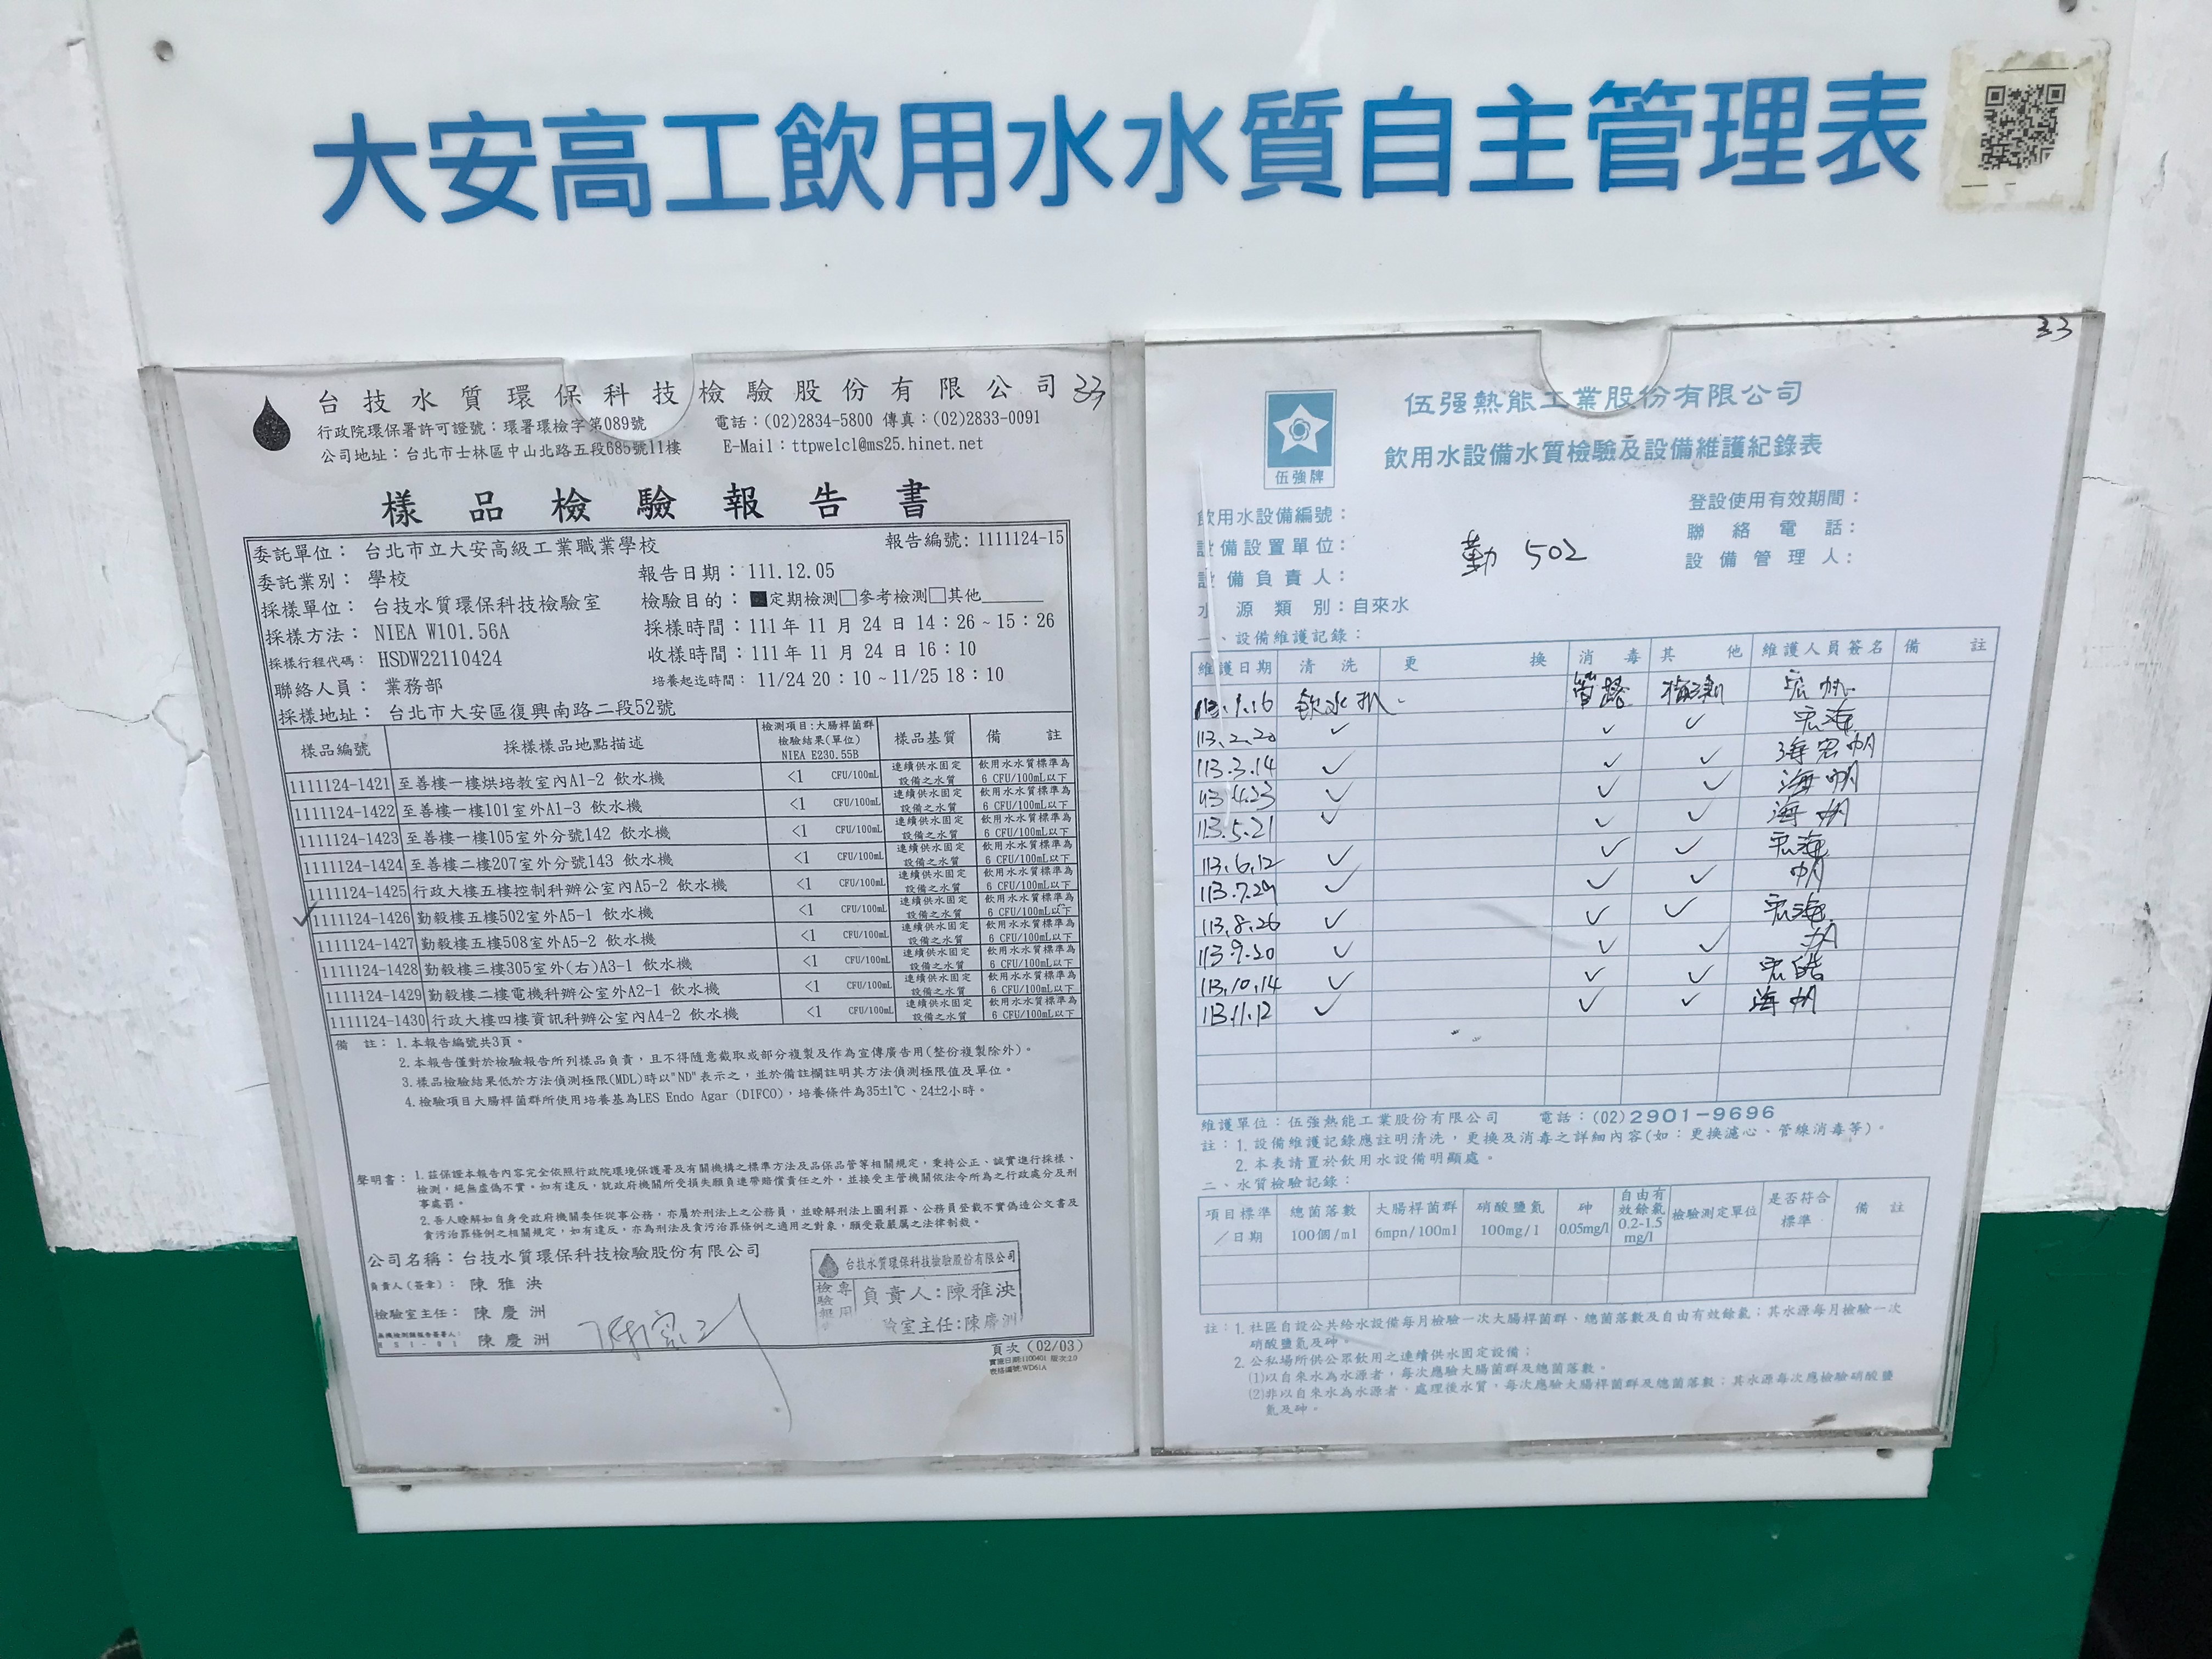 大安高工飲用水水質自主管理表
台技水質環保科技檢驗股份有限公司 33
行政院環保署許可證號：環署環檢字第089號 電話：(02)2834-5800 傳真：(02)2833-0091
公司地址：台北市士林區中山北路五段685號11樓 E-Mail：ttpwelcl@ms25.hinet.net
樣品檢驗報告書
委託單位：台北市立大安高級工業職業學校 報告編號: 1111124-15
委託業別：學校 報告日期：111.12.05
採樣單位：台技水質環保科技檢驗室 檢驗目的：■定期檢測□參考檢測□其他
採樣方法：NIEA W101.56A 採樣時間：111年11月24日14：26~15：26
採樣行程代碼：HSDW22110424 收樣時間：111年11月24日16：10
聯絡人員：業務部 培養起迄時間：11/24 20：10~11/25 18：10
採樣地址：台北市大安區復興南路二段52號
樣品編號 採樣樣品地點描述 檢測項目:大腸桿菌群 檢驗結果(單位) NIEA E230.55B 樣品基質 備註
1111124-1421 至善樓一樓烘培教室內A1-2 飲水機 <1 CFU/100mL 連續供水固定設備之水質 飲用水水質標準為6 CFU/100mL以下
1111124-1422 至善樓一樓101室外A1-3 飲水機 <1 CFU/100mL 連續供水固定設備之水質 飲用水水質標準為6 CFU/100mL以下
1111124-1423 至善樓一樓105室外分號142 飲水機 <1 CFU/100mL 連續供水固定設備之水質 飲用水水質標準為6 CFU/100mL以下
1111124-1424 至善樓二樓207室外分號143 飲水機 <1 CFU/100mL 連續供水固定設備之水質 飲用水水質標準為6 CFU/100mL以下
1111124-1425 行政大樓五樓控制科辦公室內A5-2 飲水機 <1 CFU/100mL 連續供水固定設備之水質 飲用水水質標準為6 CFU/100mL以下
✓1111124-1426 勤毅樓五樓502室外A5-1 飲水機 <1 CFU/100mL 連續供水固定設備之水質 飲用水水質標準為6 CFU/100mL以下
1111124-1427 勤毅樓五樓508室外A5-2 飲水機 <1 CFU/100mL 連續供水固定設備之水質 飲用水水質標準為6 CFU/100mL以下
1111124-1428 勤毅樓三樓305室外(右)A3-1 飲水機 <1 CFU/100mL 連續供水固定設備之水質 飲用水水質標準為6 CFU/100mL以下
1111124-1429 勤毅樓二樓電機科辦公室外A2-1 飲水機 <1 CFU/100mL 連續供水固定設備之水質 飲用水水質標準為6 CFU/100mL以下
1111124-1430 行政大樓四樓資訊科辦公室內A4-2 飲水機 <1 CFU/100mL 連續供水固定設備之水質 飲用水水質標準為6 CFU/100mL以下
備註：1.本報告編號共3頁。
2.本報告僅對於檢驗報告所列樣品負責，且不得隨意截取或部分複製及作為宣傳廣告用(整份複製除外)。
3.樣品檢驗結果低於方法偵測極限(MDL)時以"ND"表示之，並於備註欄註明其方法偵測極限值及單位。
4.檢驗項目大腸桿菌群所使用培養基為LES Endo Agar (DIFCO)，培養條件為35±1℃、24±2小時。
聲明書：1.茲保證本報告內容完全依照行政院環境保護署及有關機構之標準方法及品保品管等相關規定，秉持公正、誠實進行採樣、
檢測，絕無虛偽不實。如有違反，就政府機關所受損失願負連帶賠償責任之外，並接受主管機關依法令所為之行政處分及刑
事處罰。
2.吾人瞭解如自身受政府機關委任從事公務，亦屬於刑法上之公務員，並瞭解刑法上圖利罪、公務員登載不實偽造公文書及
貪污治罪條例之相關規定，如有違反，亦為刑法及貪污治罪條例之適用之對象，願受最嚴厲之法律制裁。
公司名稱：台技水質環保科技檢驗股份有限公司
負責人(簽章)：陳雅泱
檢驗室主任：陳慶洲
陳慶洲
台技水質環保科技檢驗股份有限公司
檢驗報 專用
負責人:陳雅泱
驗室主任:陳慶洲
頁次(02/03)
實施日期:1100401 版次2.0
表格編號:WD61A
33
伍強牌
伍强熱能工業股份有限公司
飲用水設備水質檢驗及設備維護紀錄表
飲用水設備編號： 登設使用有效期間：
設備設置單位： 勤 502 聯絡電話：
設備負責人： 設備管理人：
水源類別：自來水
一、設備維護記錄：
維護日期 清洗 更換 消毒 其他 維護人員簽名 備註
113.1.16 飲水机 管路 檢測 宏帆
113.2.20 ✓ ✓ ✓ 宏海
113.3.14 ✓ ✓ ✓ 海宏帆
113.4.23 ✓ ✓ ✓ 海帆
113.5.21 ✓ ✓ ✓ 海帆
113.6.12 ✓ ✓ ✓ 宏海
113.7.29 ✓ ✓ ✓ 帆
113.8.26 ✓ ✓ ✓ 宏海
113.9.20 ✓ ✓ ✓ 帆
113.10.14 ✓ ✓ ✓ 宏皓
113.11.12 ✓ ✓ ✓ 海帆
維護單位：伍強熱能工業股份有限公司 電話：(02)2901-9696
註：1.設備維護記錄應註明清洗，更換及消毒之詳細內容(如：更換濾心、管線消毒等)。
2.本表請置於飲用水設備明顯處。
二、水質檢驗記錄：
項目標準／日期 總菌落數 100個/ml 大腸桿菌群 6mpn/100ml 硝酸鹽氮 100mg/l 砷 0.05mg/l 自由有效餘氯 0.2-1.5 mg/l 檢驗測定單位 是否符合標準 備註
註：1.社區自設公共給水設備每月檢驗一次大腸桿菌群、總菌落數及自由有效餘氯；其水源每月檢驗一次
硝酸鹽氮及砷。
2.公私場所供公眾飲用之連續供水固定設備：
(1)以自來水為水源者，每次應驗大腸菌群及總菌落數。
(2)非以自來水為水源者，處理後水質，每次應驗大腸桿菌群及總菌落數；其水源每次應檢驗硝酸鹽
氮及砷。